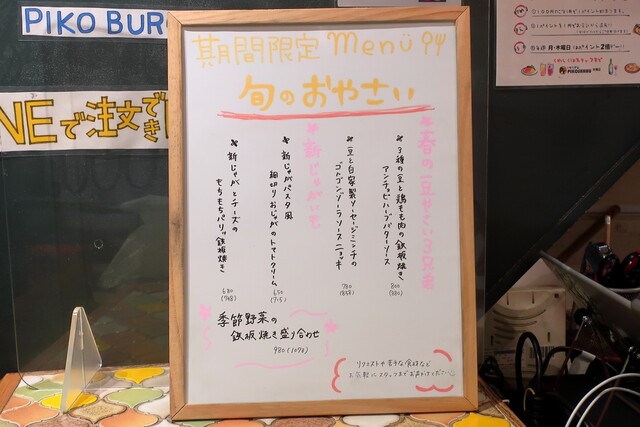 PIKO BURG
NEで注文でき
期間限定 Menü
旬のおやさい
春の豆やさい3兄弟
3種の豆と鶏もも肉の鉄板焼き
アンチョビハーブバターソース
800
(880)
豆と自家製ソーセージミンチの
ゴルゴンゾーラソースニョッキ
780
(858)
新じゃがいも
新じゃがパスタ風
細切りおじゃがのトマトクリーム
650
(715)
新じゃがとチーズの
もちもちパリッ鉄板焼き
680
(748)
季節野菜の
鉄板焼き盛り合わせ
980(1078)
リクエストや苦手な食材など
お気軽にスタッフまでお声がけください